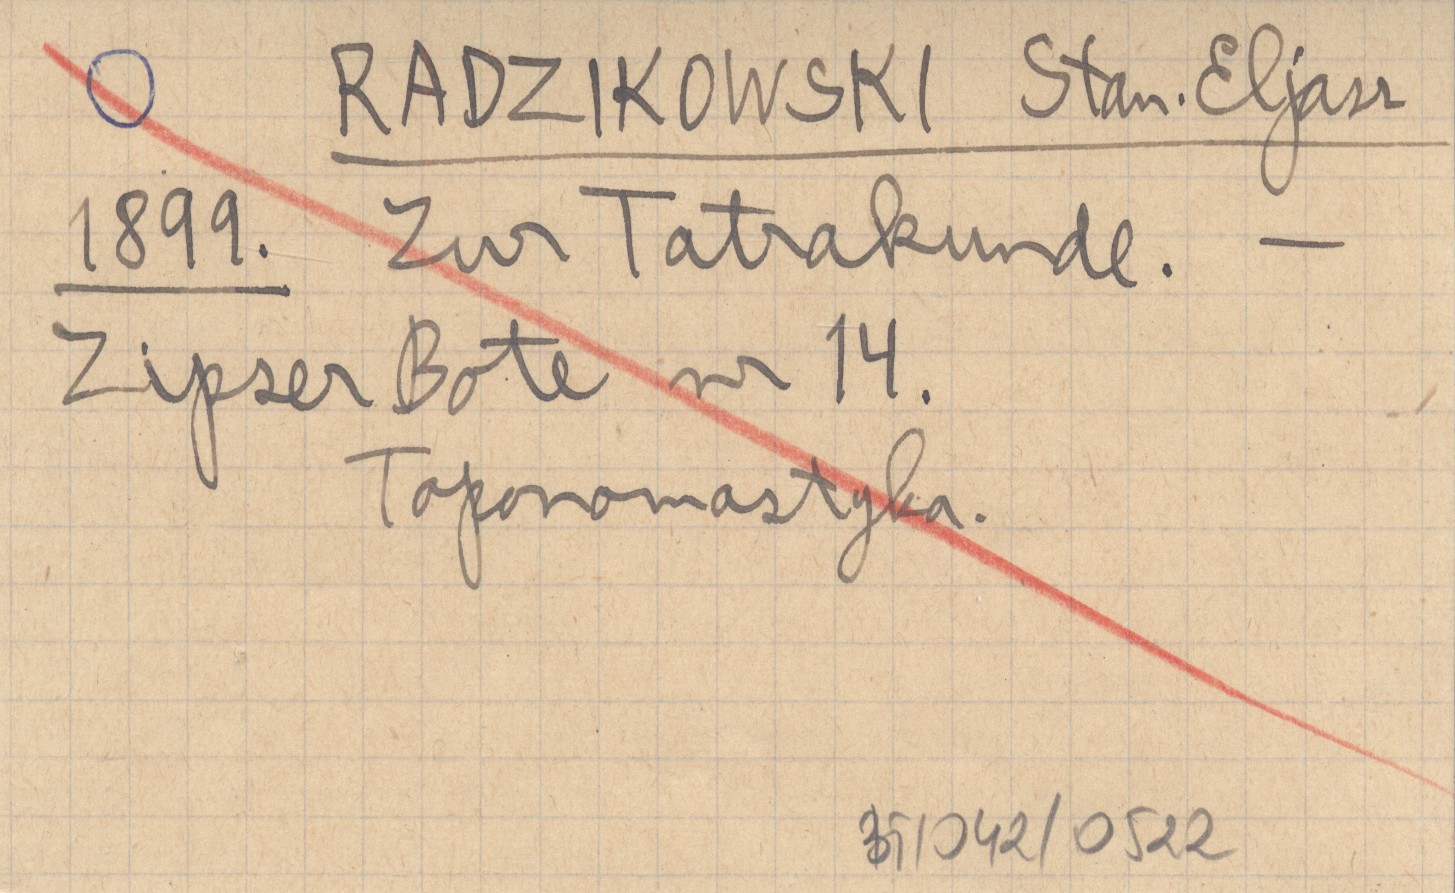 RADZIKOWSKI Stan. Eljasz
1899. Zur Tatrakunde. —
Zipser Bote nr 14.
Toponomastyka.
/042/0522